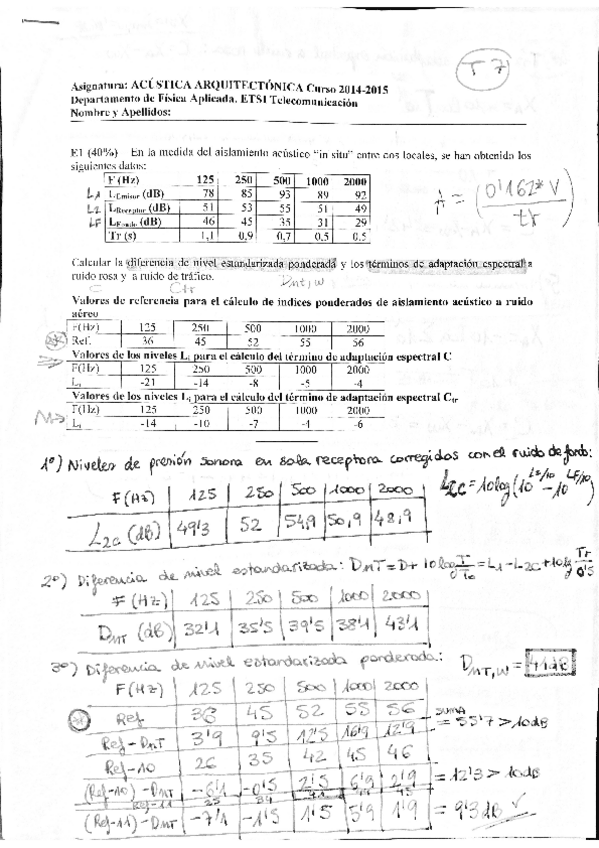 T 7
Asignatura: ACÚSTICA ARQUITECTÓNICA Curso 2014-2015
Departamento de Física Aplicada. ETSI Telecomunicación
Nombre y Apellidos:
E1 (40%) En la medida del aislamiento acústico "in situ" entre dos locales, se han obtenido los
siguientes datos:
F (Hz) 125 250 500 1000 2000
L1 LEmisor (dB) 78 85 93 89 92
L2 LReceptor (dB) 51 53 55 51 49
LF LFondo (dB) 46 45 35 31 29
Tr (s) 1,1 0,9 0,7 0,5 0,5
A = (0'162* V / tr)
Calcular la diferencia de nivel estandarizada ponderada y los términos de adaptación espectral a
ruido rosa y a ruido de tráfico.
C Ctr DnT,w
Valores de referencia para el cálculo de índices ponderados de aislamiento acústico a ruido
aéreo
F(Hz) 125 250 500 1000 2000
Ref. 36 45 52 55 56
Valores de los niveles Li para el cálculo del término de adaptación espectral C
F(Hz) 125 250 500 1000 2000
Li -21 -14 -8 -5 -4
Valores de los niveles Li para el cálculo del término de adaptación espectral Ctr
F(Hz) 125 250 500 1000 2000
Li -14 -10 -7 -4 -6
1º) Niveles de presión sonora en sala receptora corregidos con el ruido de fondo:
F(Hz) 125 250 500 1000 2000
L2C (dB) 49'3 52 54,9 50,9 48,9
L2C = 10log(10^L2/10 - 10^LF/10)
2º) Diferencia de nivel estandarizada: DnT = D + 10log T/To = L1 - L2C + 10log Tr/0'5
F (Hz) 125 250 500 1000 2000
DnT (dB) 32'1 35'5 39'5 38'1 43'1
3º) Diferencia de nivel estandarizada ponderada: DnT,w = 41dB
F(Hz) 125 250 500 1000 2000
Ref 36 45 52 55 56
Ref-DnT 3'9 9'5 12'5 16'9 12'9 SUMA = 55'7 > 10dB
Ref-10 26 35 42 45 46
(Ref-10) - DnT -6'1 -0'5 2'5 6'9 2'9 = 12'3 > 10dB
Ref-11 25 34 41 44 45
(Ref-11) - DnT -7'1 -1'5 1'5 5'9 1'9 = 9'3dB ✓